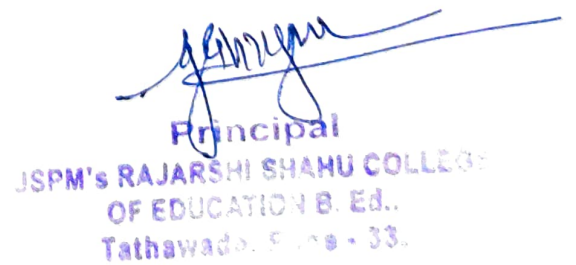 Principal
JSPM's RAJARSHI SHAHU COLLEGE
OF EDUCATION B. Ed..
Tathawade, - 33.